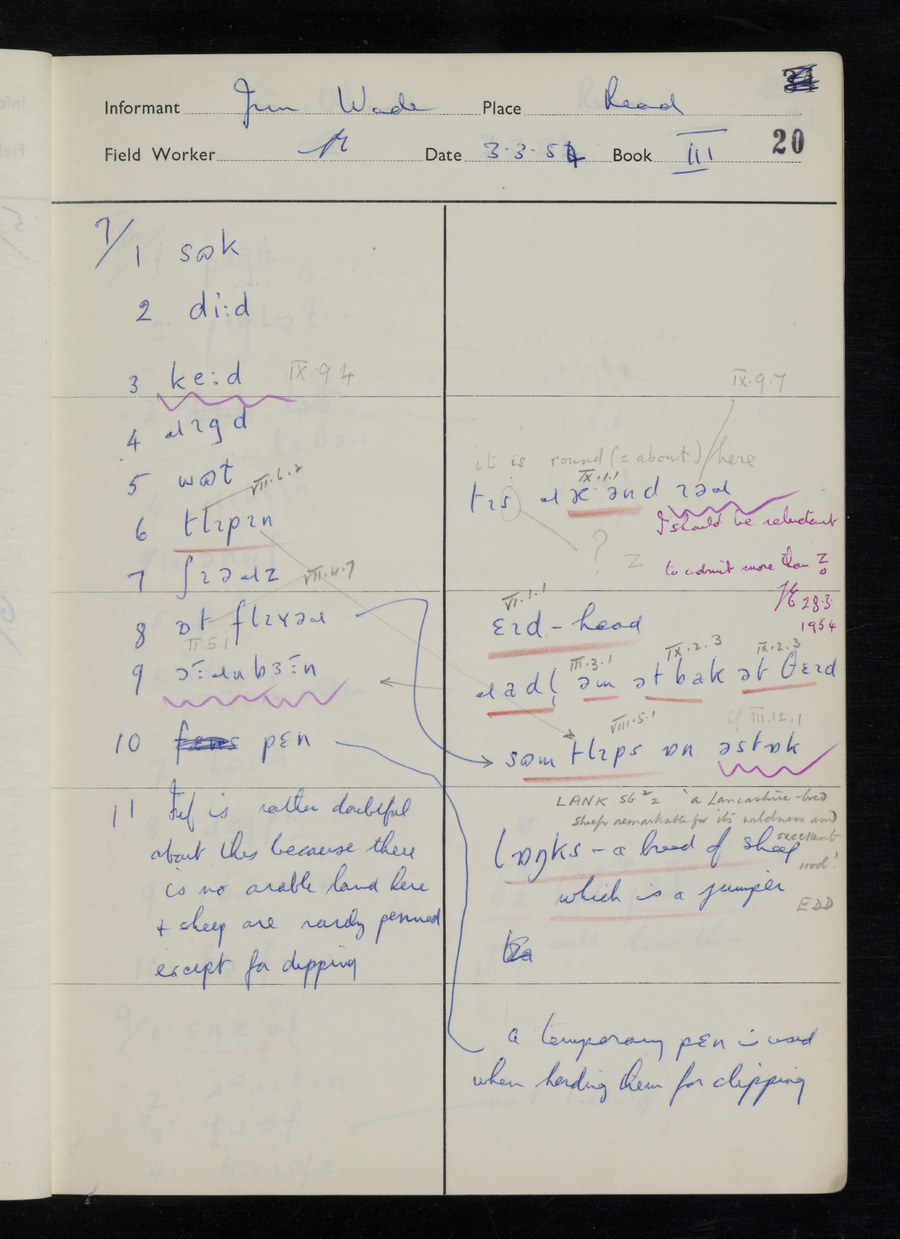 Informant Jim Wade Place Read
Field Worker Date 3·3·54 Book III 20
7/1 sɷk
2 di:d
3 ke:d IX.9.4
4 ɹɪgd
5 wɷt
6 tlɪpɪn VII.6.2
7 ʃɪəɹz VII.4.7
8 ɒt flɪɤəɹ
II.5.1
9
10 pɛn
11 Inf is rather doubtful
about this because there
is no arable land here
+ sheep are rarely penned
except for dipping
IX.9.7
it is round (= about) here
IX.1.1
tɪs ənd
I should be reluctant
? z
to admit more than z̥
28.3.
1954
VI.1.1
ɛɪd - head
III.3.1 IX.2.3 IX.2.3
əm ət bak ət θɛɪd
VIII.5.1 cf III.12.1
sɷm tlɪps ɒn əstɒk
LANK sb² 2 'a Lancashire-bred
sheep remarkable for its wildness and
excellent
wool'
EDD
lɒŋks - a breed of sheep
which is a jumper
a temporary pɛn is used
when herding them for clipping